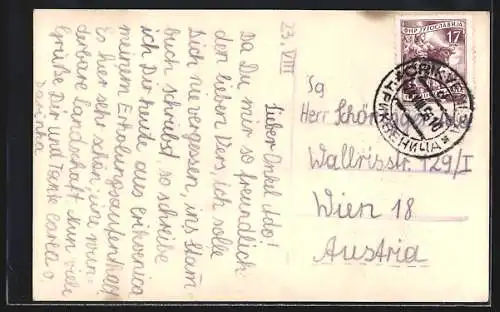 23. VIII
Lieber Onkel Ado!
Da Du mir so freundlich
den lieben Vers, ich solle
Dich nie vergessen, ins Stam-
buch schriebst, so schreibe
ich Dir heute aus Crikvenica
meinem Erholungsaufenthalt
Es hier sehr schön, eine wun-
derbare Landschaft. Nun viele
Grüße Dir und Tante Carla v.
ФНР ЈУГОСЛАВИЈА
17
ЦРИКВЕНИЦА
Sg
Herr
Wallrisstr. 129/I
Wien 18
Austria